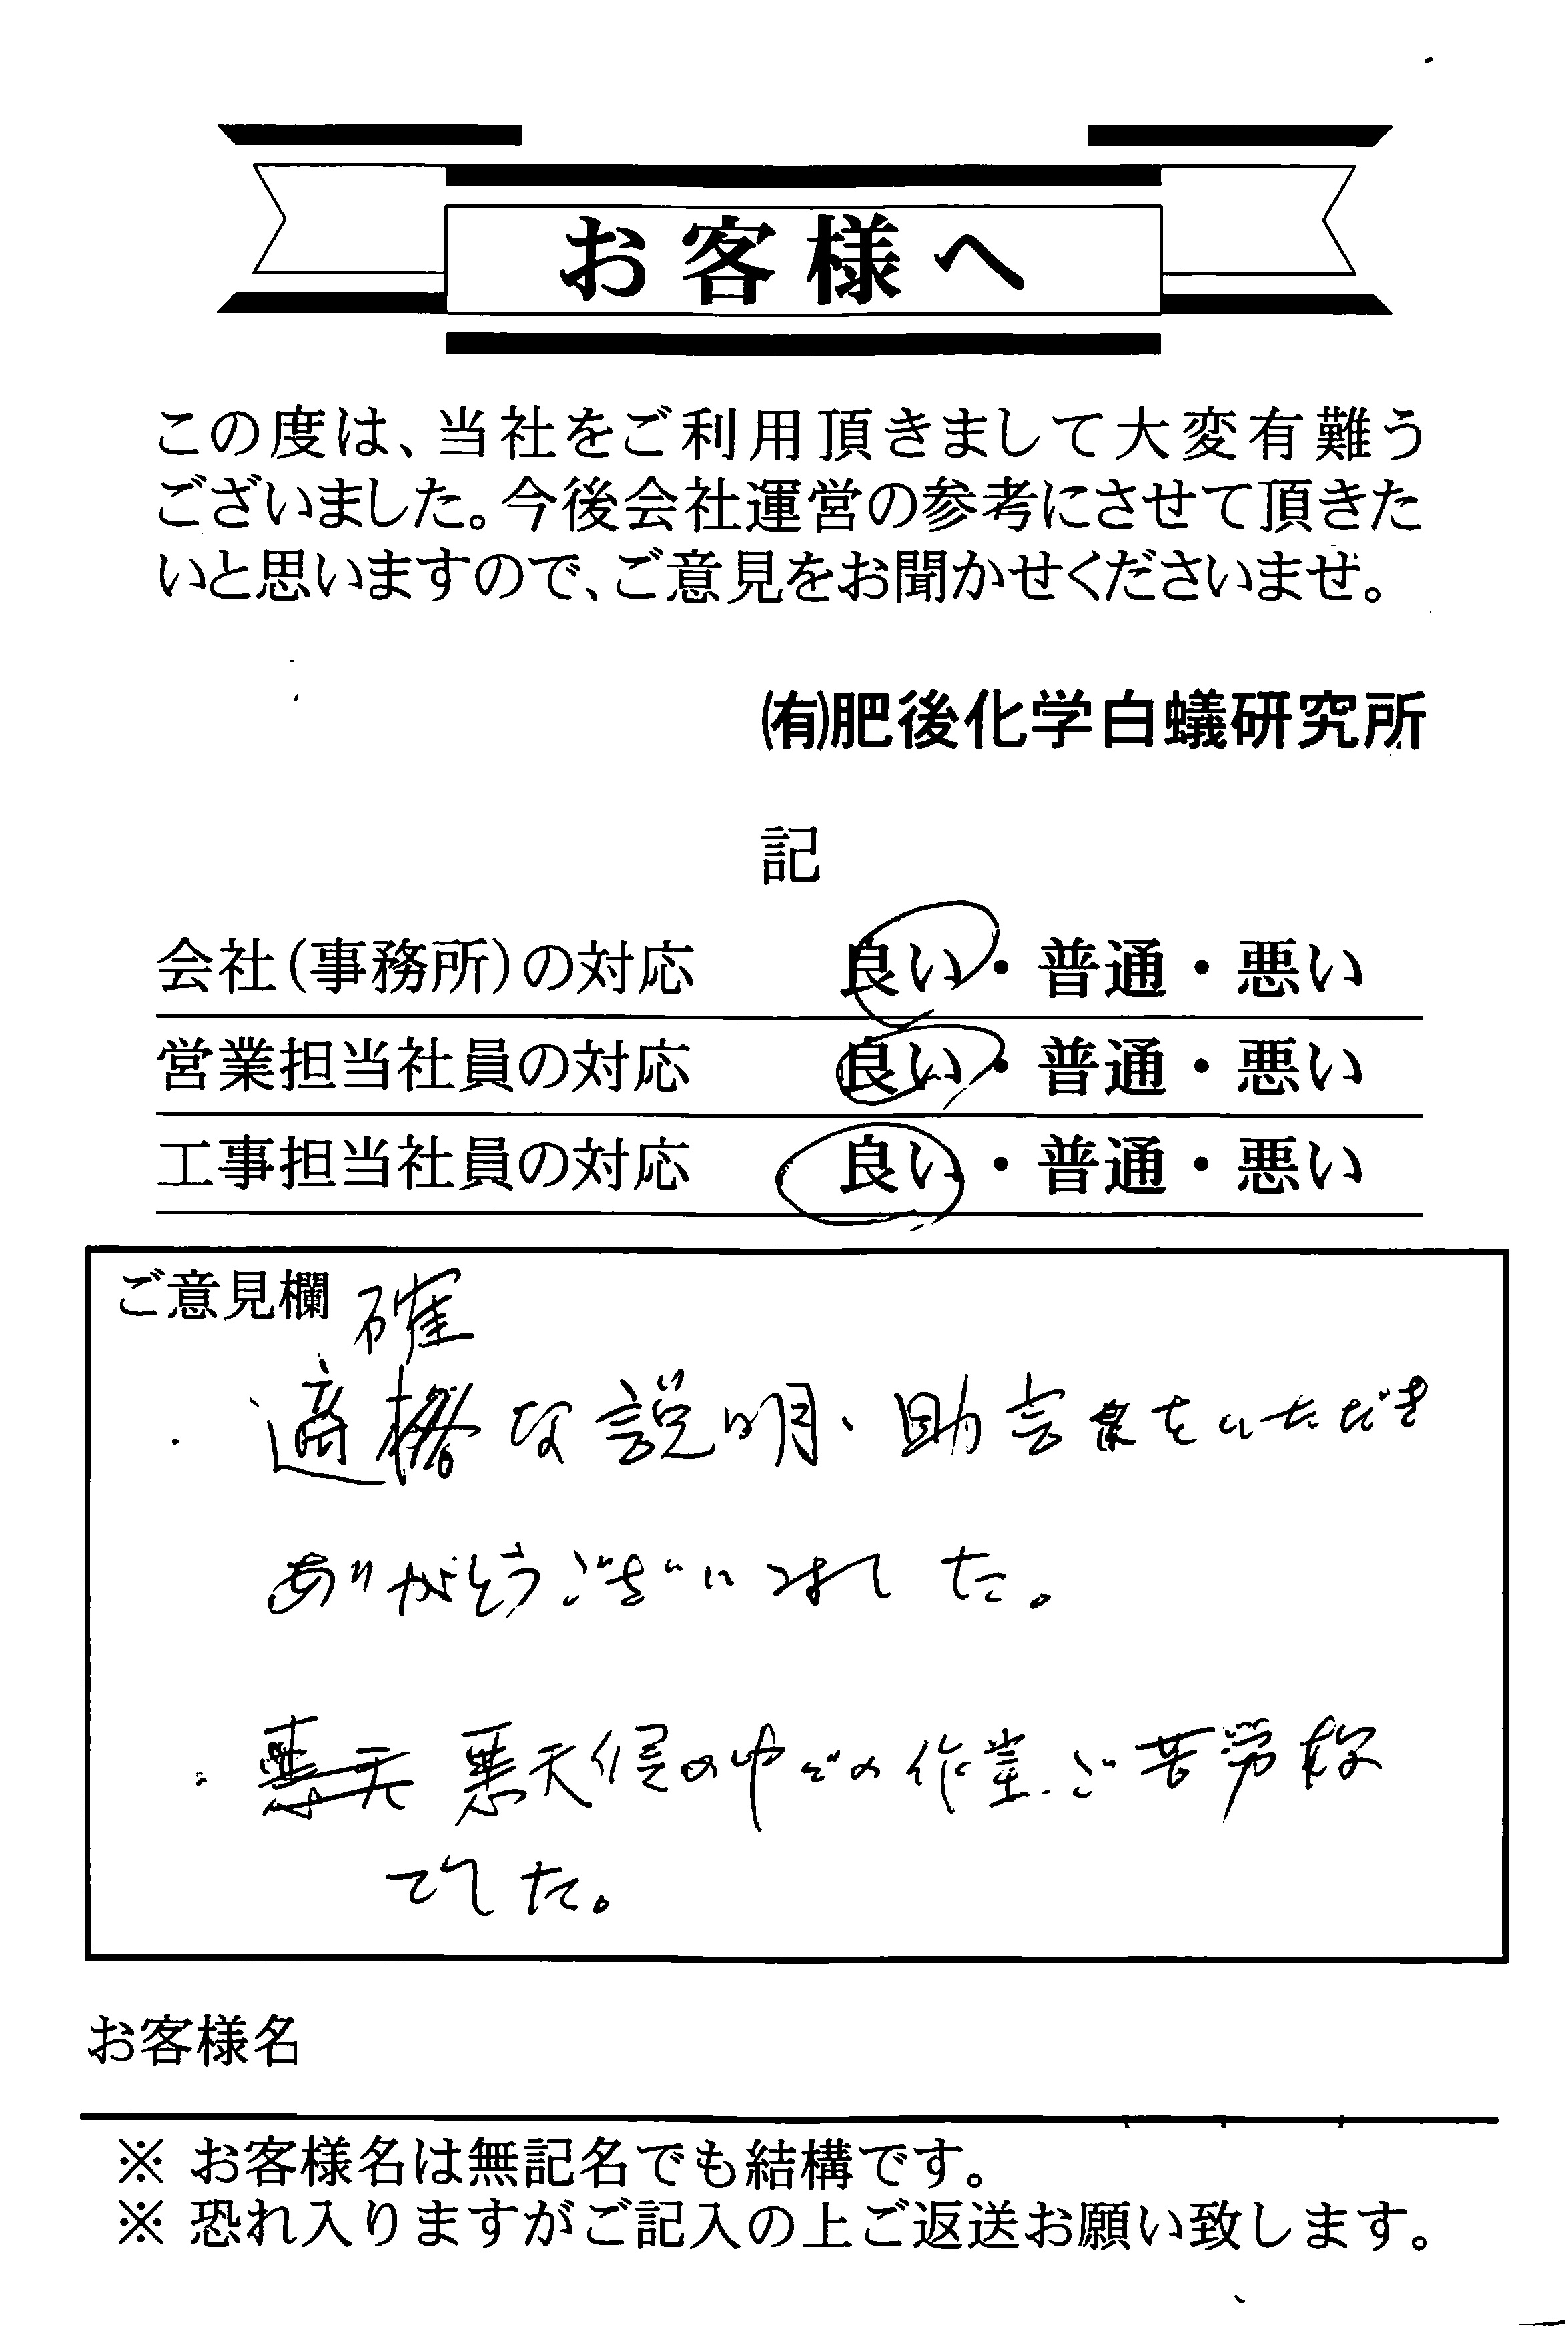 お客様へ
この度は、当社をご利用頂きまして大変有難う
ございました。今後会社運営の参考にさせて頂きた
いと思いますので、ご意見をお聞かせくださいませ。
㈲肥後化学白蟻研究所
記
会社(事務所)の対応 良い・普通・悪い
営業担当社員の対応 良い・普通・悪い
工事担当社員の対応 良い・普通・悪い
ご意見欄
・適確な説明、助言をいただき
ありがとうございました。
・悪天候の中での作業、ご苦労様
でした。
お客様名
※ お客様名は無記名でも結構です。
※ 恐れ入りますがご記入の上ご返送お願い致します。